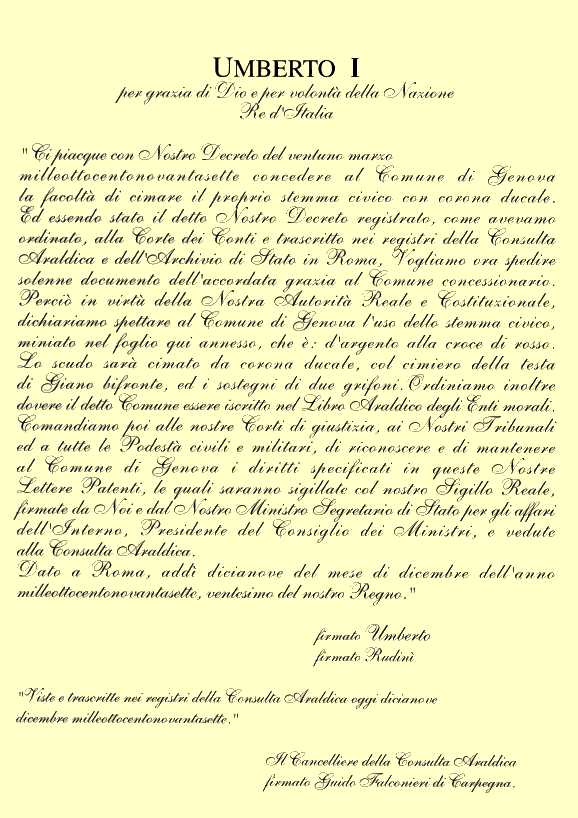 UMBERTO I
per grazia di Dio e per volontà della Nazione
Re d'Italia
"Ci piacque con Nostro Decreto del ventuno marzo
milleottocentonovantasette concedere al Comune di Genova
la facoltà di cimare il proprio stemma civico con corona ducale.
Ed essendo stato il detto Nostro Decreto registrato, come avevamo
ordinato, alla Corte dei Conti e trascritto nei registri della Consulta
Araldica e dell'Archivio di Stato in Roma, Vogliamo ora spedire
solenne documento dell'accordata grazia al Comune concessionario.
Perciò in virtù della Nostra Autorità Reale e Costituzionale,
dichiariamo spettare al Comune di Genova l'uso dello stemma civico,
miniato nel foglio qui annesso, che è: d'argento alla croce di rosso.
Lo scudo sarà cimato da corona ducale, col cimiero della testa
di Giano bifronte, ed i sostegni di due grifoni. Ordiniamo inoltre
dovere il detto Comune essere iscritto nel Libro Araldico degli Enti morali.
Comandiamo poi alle nostre Corti di giustizia, ai Nostri Tribunali
ed a tutte le Podestà civili e militari, di riconoscere e di mantenere
al Comune di Genova i diritti specificati in queste Nostre
Lettere Patenti, le quali saranno sigillate col nostro Sigillo Reale,
firmate da Noi e dal Nostro Ministro Segretario di Stato per gli affari
dell'Interno, Presidente del Consiglio dei Ministri, e vedute
alla Consulta Araldica.
Dato a Roma, addì dicianove del mese di dicembre dell'anno
milleottocentonovantasette, ventesimo del nostro Regno."
firmato Umberto
firmato Rudinì
"Viste e trascritte nei registri della Consulta Araldica oggi dicianove
dicembre milleottocentonovantasette."
Il Cancelliere della Consulta Araldica
firmato Guido Falconieri di Carpegna.